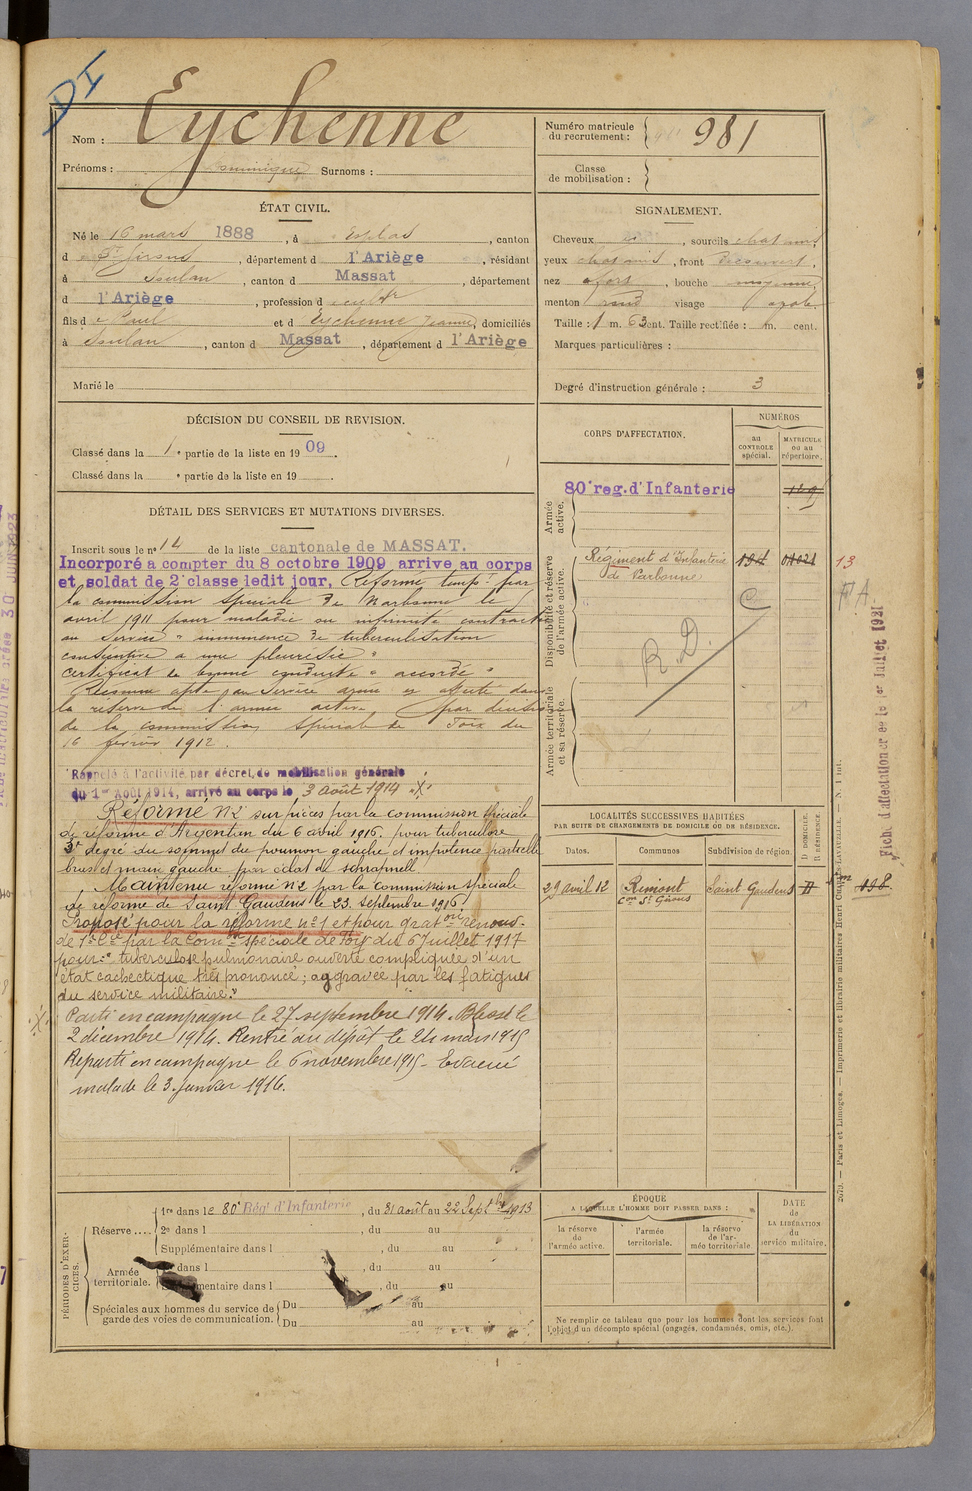 DI
Nom : Eychenne
Prénoms : Dominique Surnoms :
Numéro matricule du recrutement : 981
Classe de mobilisation :
ÉTAT CIVIL.
Né le 16 mars 1888, à Esplas, canton
d St Girons, département d l'Ariège, résidant
à Soulan, canton d Massat, département
d l'Ariège, profession d cultr
fils d e Paul et d Eychenne Jeanne, domiciliés
à Soulan, canton d Massat, département d l'Ariège
Marié le
SIGNALEMENT.
Cheveux, sourcils chatains
yeux chatains, front découvert,
nez fort, bouche moyenne,
menton rond visage ovale
Taille : 1 m. 63 cent. Taille rectifiée : m. cent.
Marques particulières :
Degré d'instruction générale : 3
DÉCISION DU CONSEIL DE REVISION.
Classé dans la 1e partie de la liste en 1909.
Classé dans la e partie de la liste en 19 .
DÉTAIL DES SERVICES ET MUTATIONS DIVERSES.
Inscrit sous le n° 14 de la liste cantonale de MASSAT.
Incorporé à compter du 8 octobre 1909 arrive au corps
et soldat de 2e classe ledit jour. Réformé tempt par
la commission spéciale de Narbonne le
avril 1911 pour maladie ou infirmité contractée
au service « imminence de tuberculisation
consécutive à une pleurésie »
certificat de bonne conduite « accordé »
Reconnu apte au service armé et affecté dans
la réserve de l'armée active, par décision
de la commission spéciale de Foix du
16 février 1912.
Rappelé à l'activité par décret de mobilisation générale
du 1er Août 1914, arrivé au corps le 3 août 1914 "X"
Réformé N°2 sur pièces par la commission spéciale
de réforme d'Argentan du 6 avril 1916. pour tuberculose
3e degré du sommet du poumon gauche et impotence partielle
bras et main gauche par éclat de schrapnell
Maintenu réformé n°2 par la commission spéciale
de réforme de Saint Gaudens le 23 septembre 1916
Proposé pour la réforme n°1 et pour grat on renouv.
de 1re Cie par la Com on spéciale de Foix du 6 Juillet 1917
pour : " tuberculose pulmonaire ouverte compliquée d'un
état cachectique très prononcé ; aggravée par les fatigues
du service militaire."
X Parti en campagne le 27 septembre 1914. Blessé le
2 décembre 1914. Rentré au dépôt le 24 mars 1915
Reparti en campagne le 6 novembre 1915 - Evacué
malade le 3 Janvier 1916.
CORPS D'AFFECTATION.
NUMÉROS
au CONTROLE spécial.
MATRICULE ou au répertoire.
Armée active.
80e reg. d'Infanterie
Disponibilité et réserve de l'armée active.
Régiment d'Infanterie
de Narbonne
13
C
F.A.
R.D
Armée territoriale et sa réserve.
Fiche d'affectation créée le 1er Juillet 1921
LOCALITÉS SUCCESSIVES HABITÉES
PAR SUITE DE CHANGEMENTS DE DOMICILE OU DE RÉSIDENCE.
Dates. Communes Subdivision de région. D DOMICILE. R RÉSIDENCE
29 avril 12 Rimont Saint Gaudens D 198
Con St Girons
PÉRIODES D'EXERCICES.
Réserve .... 1re dans le 80e Régt d'Infanterie, du 31 août au 22 Septbre 1913
2e dans l , du au
Supplémentaire dans l , du au
Armée territoriale. dans l , du au
Supplémentaire dans l , du au
Spéciales aux hommes du service de garde des voies de communication. Du au
Du au
ÉPOQUE
A LAQUELLE L'HOMME DOIT PASSER DANS :
la réserve de l'armée active.
l'armée territoriale.
la réserve de l'armée territoriale.
DATE de LA LIBÉRATION du service militaire.
Ne remplir ce tableau que pour les hommes dont les services font
l'objet d'un décompte spécial (engagés, condamnés, omis, etc.).
2679. — Paris et Limoges. — Imprimerie et librairie militaires Henri CHARLES-LAVAUZELLE — N. 1 int.